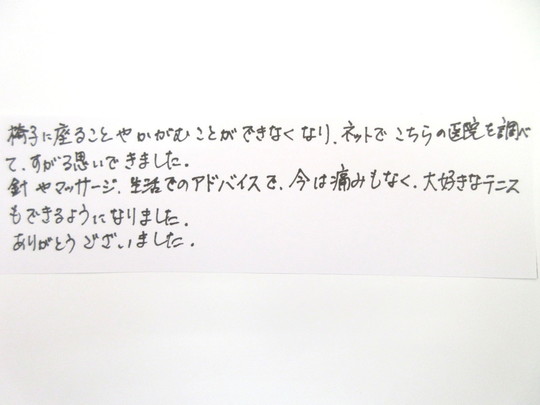 椅子に座ることやかがむことができなくなり、ネットでこちらの医院を調べ
て、すがる思いできました。
針やマッサージ、生活でのアドバイスで、今は痛みもなく、大好きなテニス
もできるようになりました。
ありがとうございました。